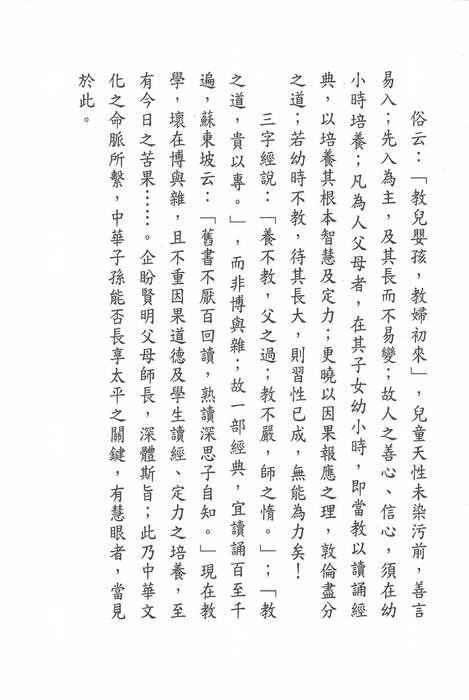 俗云：「教兒嬰孩，教婦初來」，兒童天性未染污前，善言
易入；先入為主，及其長而不易變；故人之善心、信心，須在幼
小時培養；凡為人父母者，在其子女幼小時，即當教以讀誦經
典，以培養其根本智慧及定力；更曉以因果報應之理，敦倫盡分
之道；若幼時不教，待其長大，則習性已成，無能為力矣！
三字經說：「養不教，父之過；教不嚴，師之惰。」；「教
之道，貴以專。」，而非博與雜；故一部經典，宜讀誦百至千
遍，蘇東坡云：「舊書不厭百回讀，熟讀深思子自知。」現在教
學，壞在博與雜，且不重因果道德及學生讀經、定力之培養，至
有今日之苦果……。企盼賢明父母師長，深體斯旨；此乃中華文
化之命脈所繫，中華子孫能否長享太平之關鍵，有慧眼者，當見
於此。